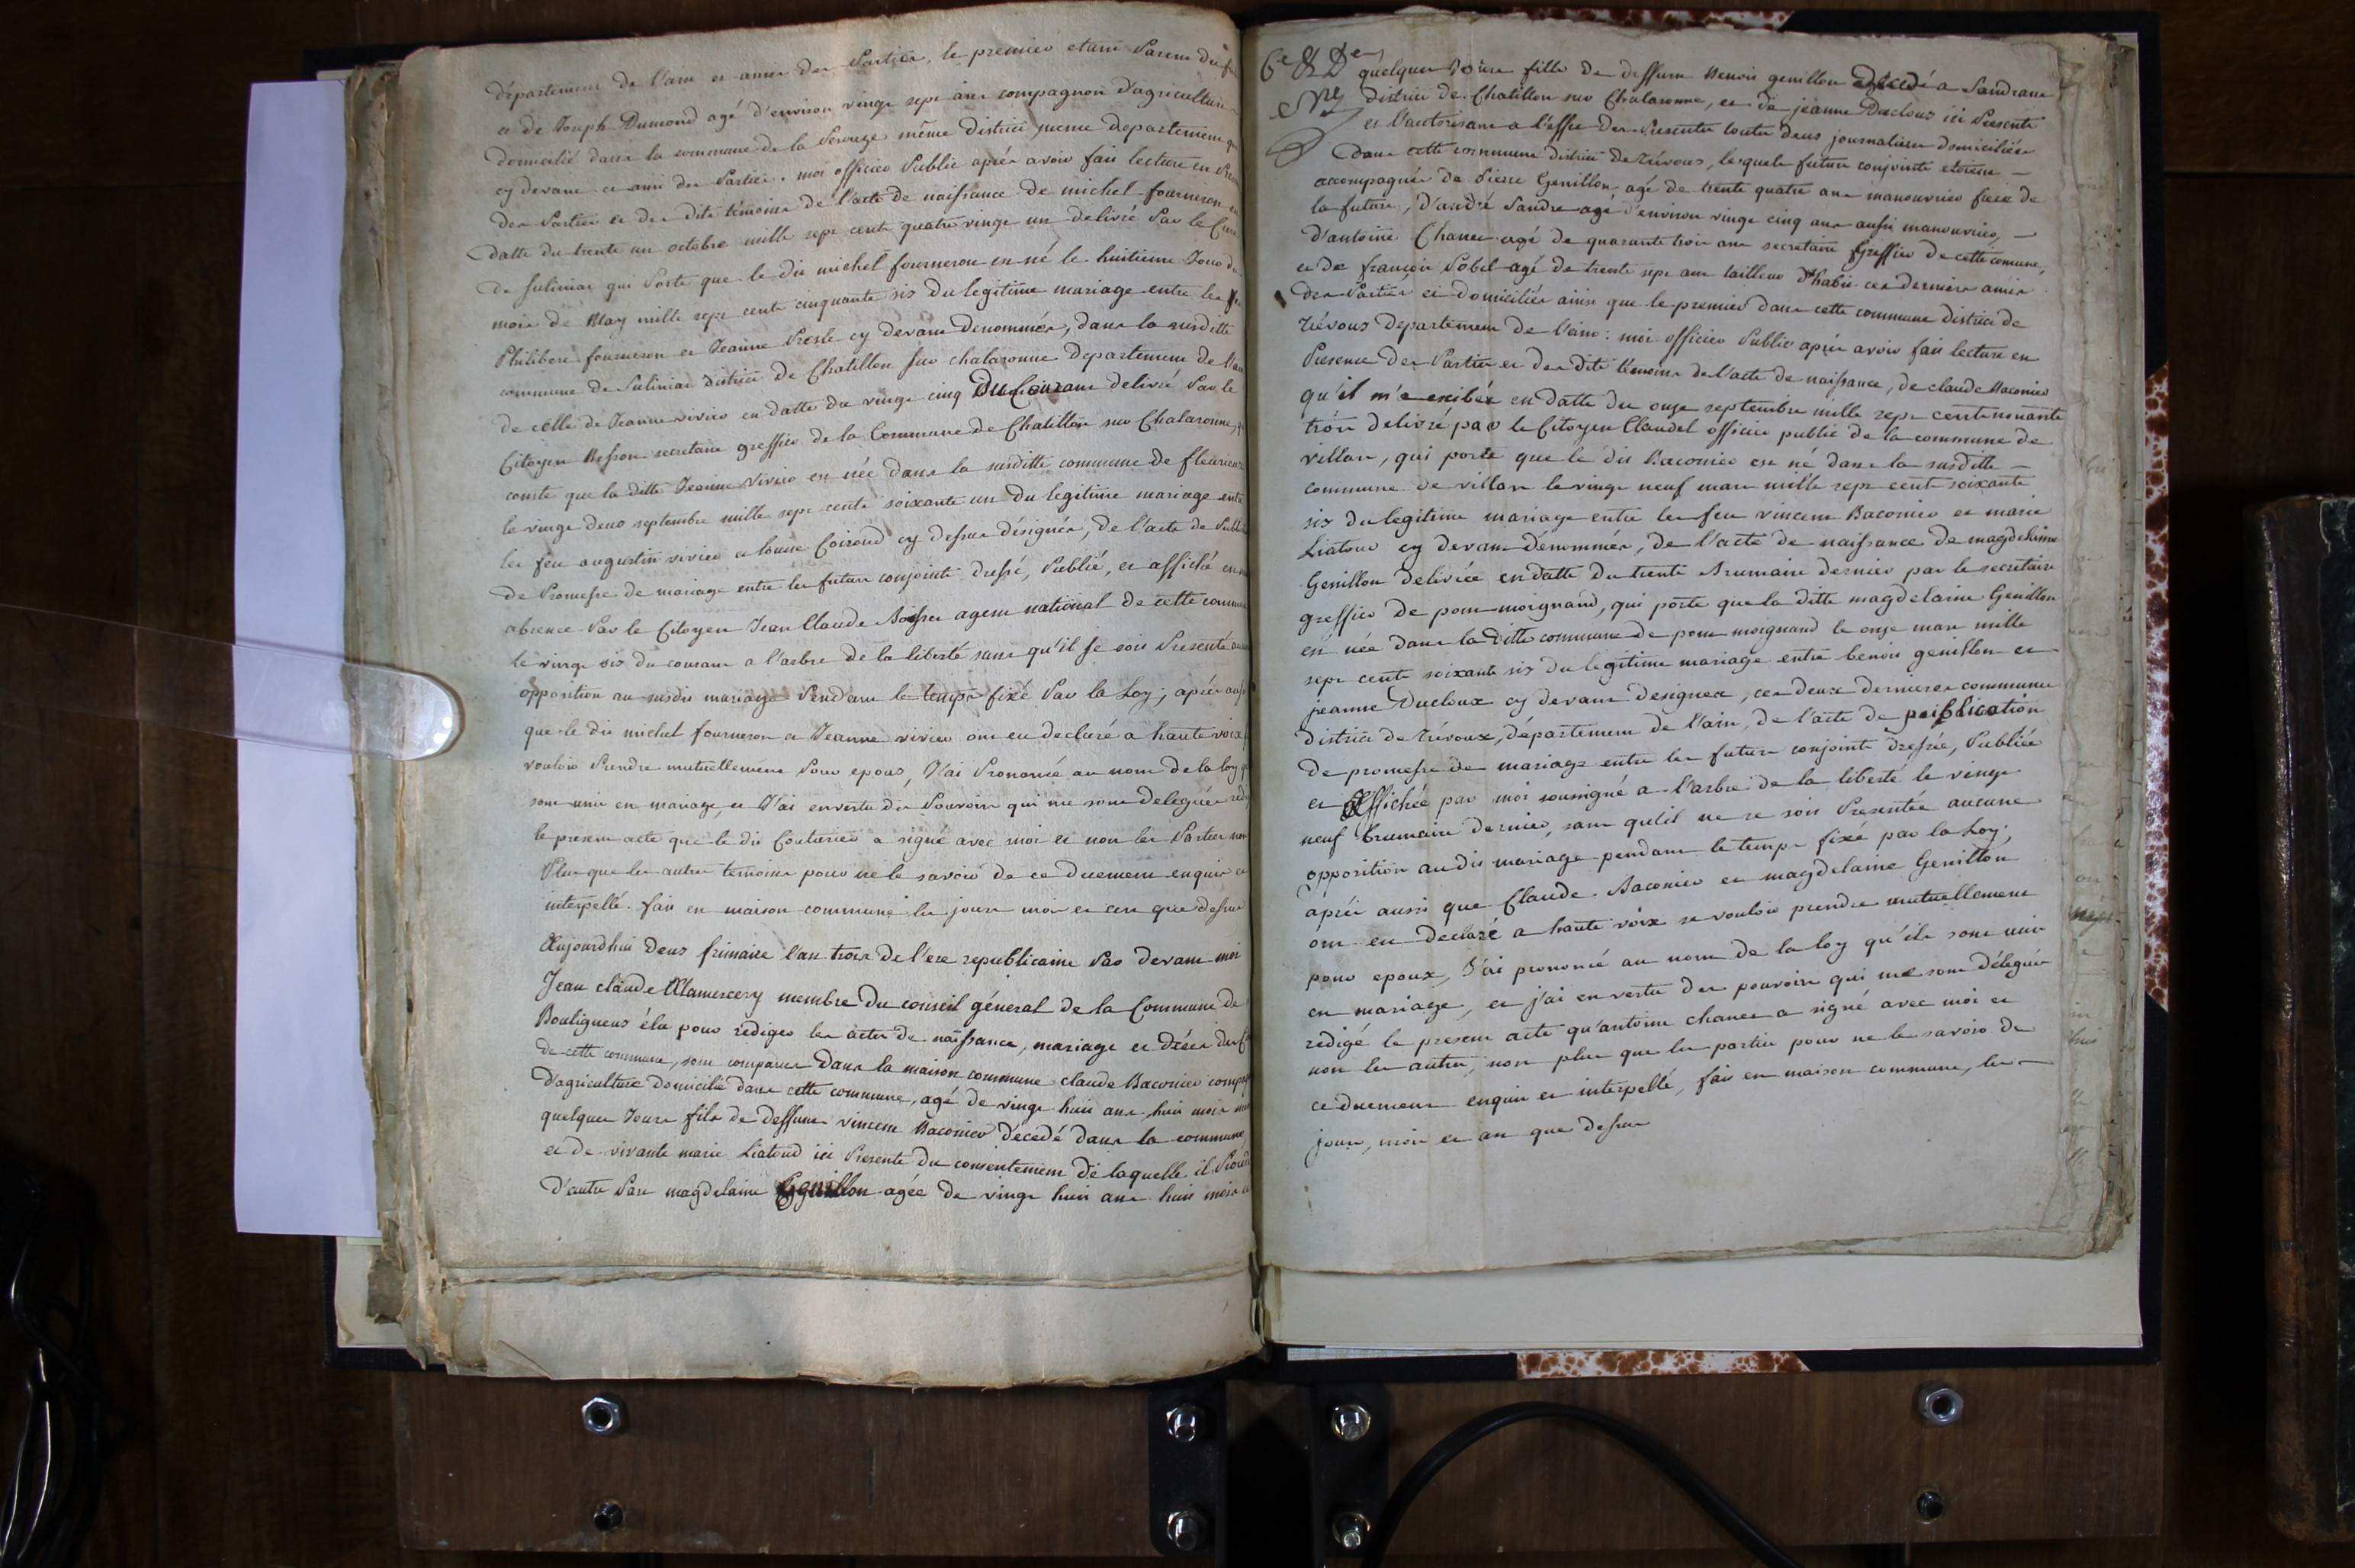 département de l'ain et amis des Parties, le premier etant Parent du f
et de Joseph Dumond agé d'environ vingt sept ans compagnon d'agriculture
domicilié dans la commune de la même district, meme departement
cy devant et ami des Parties. moi officier Public après avoir fait lecture en
des Parties et des dits témoins de l'acte de naissance de michel fourneron en
datte du trente un octobre mille sept cent quatre vingt un delivré Par le Curé
de Suliniat qui Porte que le dit michel fourneron est né le huitieme Jour du
mois de May mille sept cent cinquante six du legitime mariage entre les
Philibert fourneron et Jeanne Presle cy devant denommés, dans la susditte
commune de Suliniat district de Chatillon sur chalaronne departement de l'ain
de celle de Jeanne vivier en datte du vingt cinq Du Courant delivré Par le
Citoyen Besson secretaire greffier de la Commune de Chatillon sur Chalaronne, q
conste que la ditte Jeanne Vivier est née dans la susditte commune de fleurieux
le vingt deux septembre mille sept cent soixante un du legitime mariage entre
les feu augustin vivier et louise Coirond cy dessus désignés, de l'acte de Publi
de Promesse de mariage entre les futurs conjoints dressé, Publié, et affiché en
absence Par le Citoyen Jean Claude agent national de cette commune
le vingt six du courant a l'arbre de la liberté sans qu'il se soit Presenté au
opposition au susdit mariage Pendant le temps fixé Par la Loy; après aussi
que le dit michel fourneron et Jeanne vivier ont eu declaré a haute voix
vouloir Prendre mutuellement Pour epoux, J'ai Prononcé au nom de la loy q
sont unis en mariage, et J'ai en vertu des Pouvoirs qui me sont delegués red
le present acte que le dit Couturier a signé avec moi et non les Parties non
Plus que les autres temoins pour ne le savoir de ce duement enquis et
interpellé. fait en maison commune les jour mois et an que dessus
Aujourdhui deux frimaire l'an trois de l'ere republicaine Par devant moi
Jean claude Alamercery membre du conseil géneral de la Commune de
Bouligneux élu pour rediger les actes de naissance, mariage et décès des C
de cette commune, sont comparus dans la maison commune claude Baconier compag
d'agriculture domicilié dans cette commune, agé de vingt huit ans huit mois
quelques Jours fils de deffunt vincent Baconier décédé dans la commune,
et de vivante marie Liatoud ici Presente du consentement de laquelle il
D'autre Part magdelaine Genillon agée de vingt huit ans huit mois et
6e & De quelques Jours fille de deffunt Benoit genillon décédé a Sandrans
district de Chatillon sur Chalaronne, et de jeanne Ducloux ici Presente
et l'autorisant a l'effet des Presentes toutes deux journalieres domiciliées
dans cette commune district de trévoux, lesquels futurs conjoints etoient –
accompagnés de Pierre Genillon, agé de trente quatre ans manouvrier frere de
la future, d'andré Sandre agé d'environ vingt cinq ans aussi manouvrier, –
d'antoine Chanet agé de quarante trois ans secretaire Greffier de cette comune,
et de françois Pobel agé de trente sept ans tailleur d'habit ces derniers amis
des Parties et domiciliés ainsi que le premier dans cette commune district de
trévoux departement de l'ain: moi officier Public après avoir fait lecture en
Presence des Parties et des dits témoins de l'acte de naissance, de claude Baconier
qu'il m'a exibée en datte du onze septembre mille sept cent nonante
trois delivré par le Citoyen Claudel officier public de la commune de
villars, qui porte que le dit Baconier est né dans la susditte –
commune de villars le vingt neuf mars mille sept cent soixante
six du legitime mariage entre les feu vincent Baconier et marie
Liatoud cy devant dénommés, de l'acte de naissance de magdelaine
Genillon delivrée en datte du trente Brumaire dernier par le secretaire
greffier de pont-moignand, qui porte que la ditte magdelaine Genillon
est née dans la ditte commune de pont moignand le onze mars mille
sept cent soixante six du legitime mariage entre benoit genillon et
jeanne Ducloux cy devant designés, ces deux dernieres communes
district de trévoux, département de l'ain, de l'acte de publication
de promesse de mariage entre les futurs conjoints dressée, Publiée
et affichée par moi soussigné a l'arbre de la liberté le vingt
neuf brumaire dernier, sans qu'il ne se soit Presentée aucune
opposition audit mariage pendant le temps fixé par la Loy;
après aussi que Claude Baconier et magdelaine Genillon
ont eu declaré a haute voix se vouloir prendre mutuellement
pour epoux, J'ai prononcé au nom de la loy qu'ils sont unis
en mariage, et j'ai en vertu des pouvoirs qui me sont délegués
redigé le present acte qu'antoine chanet a signé avec moi et
non les autres, non plus que les parties pour ne le savoir de
ce duement enquis et interpellé, fait en maison commune, les –
jour, mois et an que dessus